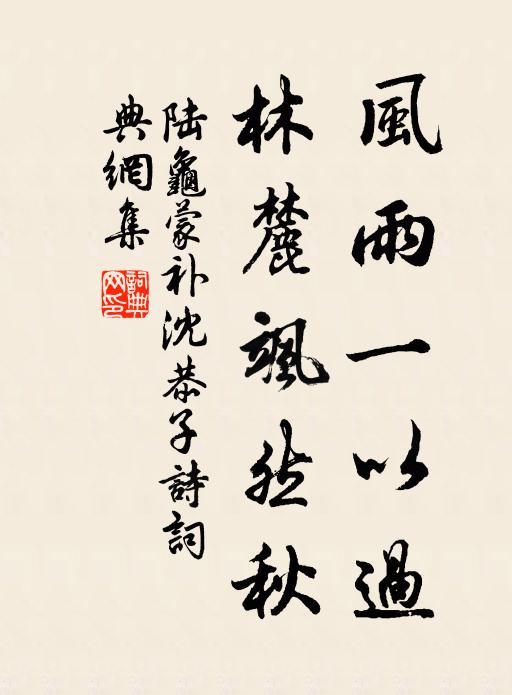 風雨一以過
林麓颯然秋
陆龜蒙补沈恭子詩詞
典網集
詞典網印